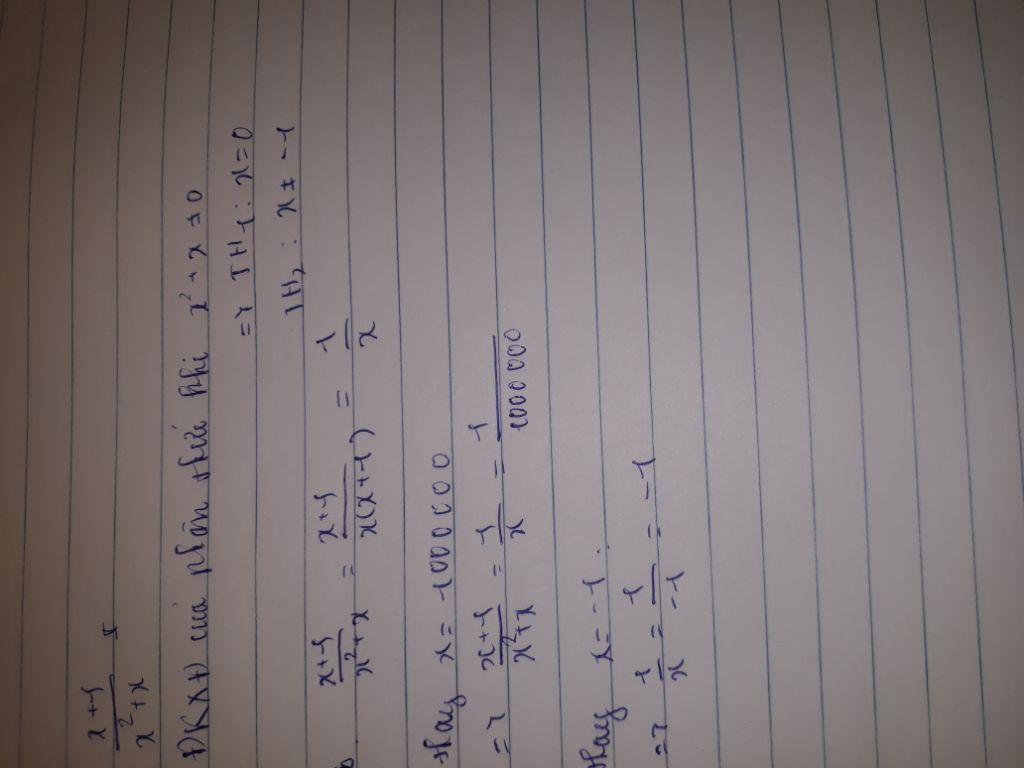 x+1 / x²+x
ĐKXĐ của phân thức khi x²+x ≠ 0
=> TH1: x=0
TH2: x ≠ -1
b. x+1 / x²+x = x+1 / x(x+1) = 1/x
thay x = 1000000
=> x+1 / x²+x = 1/x = 1/1000000
thay x = -1
=> 1/x = 1/-1 = -1